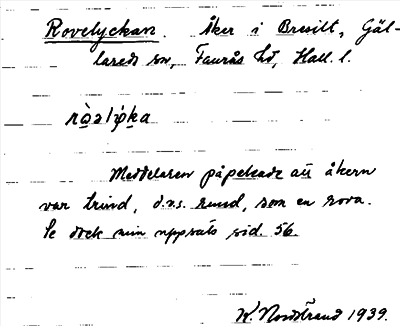 Rovelyckan. Åker i Bresilt, Gäl-
lareds sn, Faurås hd, Hall. l.
Meddelaren påpekade att åkern
var trind, d.v.s. rund, som en rova.
Se dock min uppsats sid. 56.
K. Nordstrand 1939.